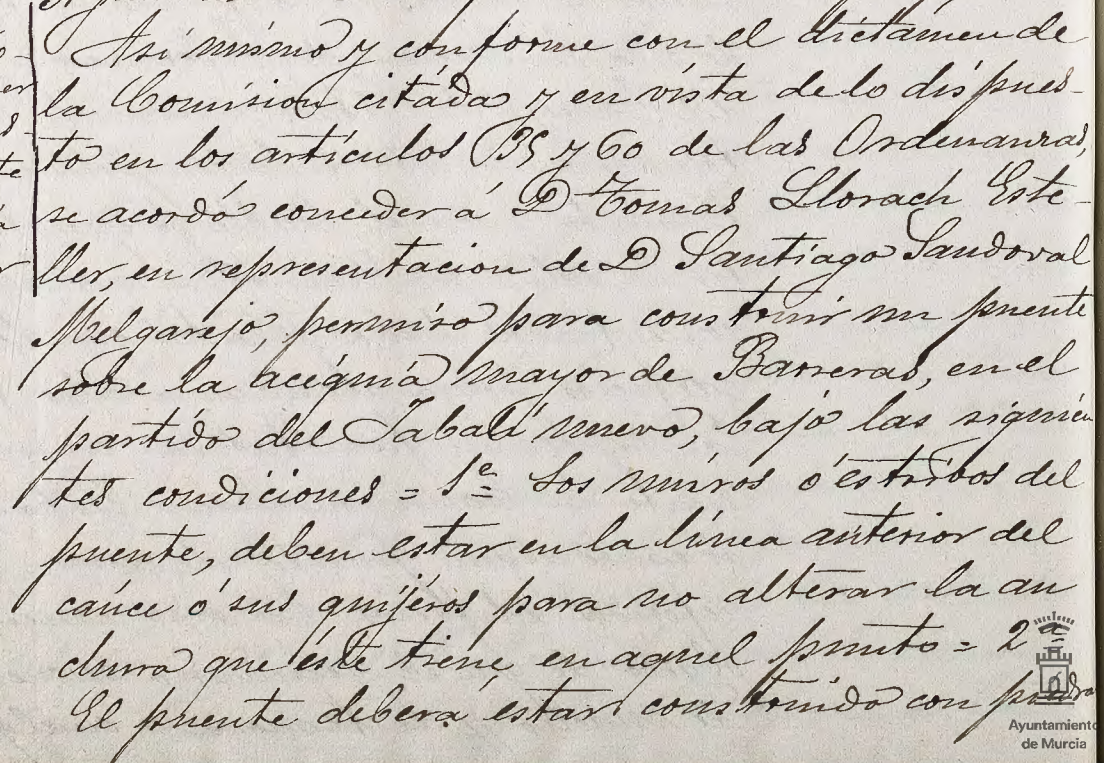 Asi mismo y conforme con el dictámen de
la Comision citada y en vista de lo dispues-
to en los artículos 35 y 60 de las Ordenanzas,
se acordó conceder á D Tomas Llorach Este-
ller, en representacion de D Santiago Sandoval
Melgarejo, permiso para construir un puente
sobre la acéquia mayor de Barreras, en el
partido del Jabalí nuevo, bajo las siguien
tes condiciones = 1ª Los muros ó estribos del
puente, deben estar en la línea anterior del
cáuce ó sus quijéros para no alterar la an
chura que éste tiene, en aquel punto = 2ª
El puente deberá estar construido con piedra
Ayuntamiento
de Murcia